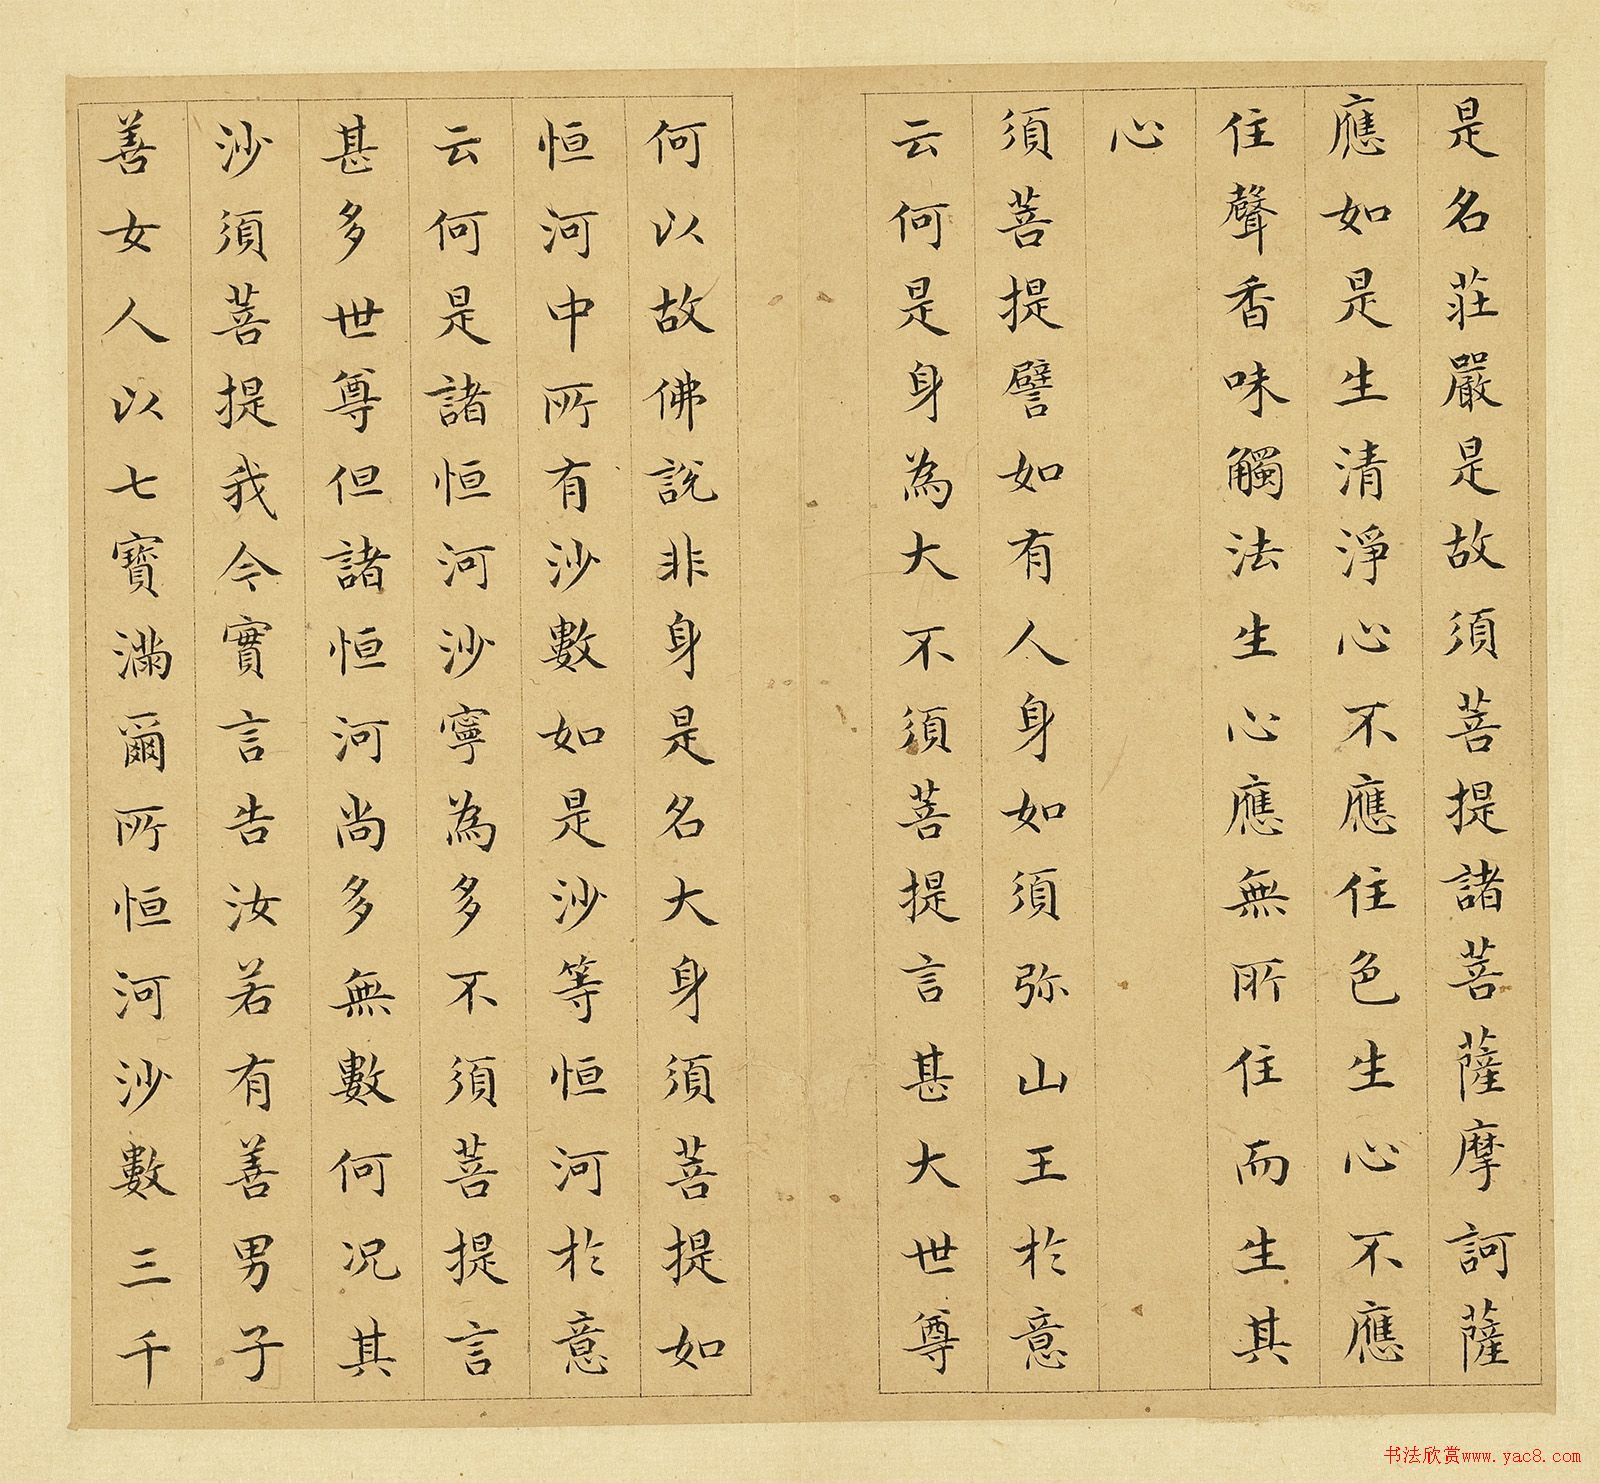 是名莊嚴是故須菩提諸菩薩摩訶薩
應如是生清淨心不應住色生心不應
住聲香味觸法生心應無所住而生其
心
須菩提譬如有人身如須弥山王於意
云何是身為大不須菩提言甚大世尊
何以故佛說非身是名大身須菩提如
恒河中所有沙數如是沙等恒河於意
云何是諸恒河沙寧為多不須菩提言
甚多世尊但諸恒河尚多無數何况其
沙須菩提我今實言告汝若有善男子
善女人以七寶滿爾所恒河沙數三千
书法欣赏www.yac8.com